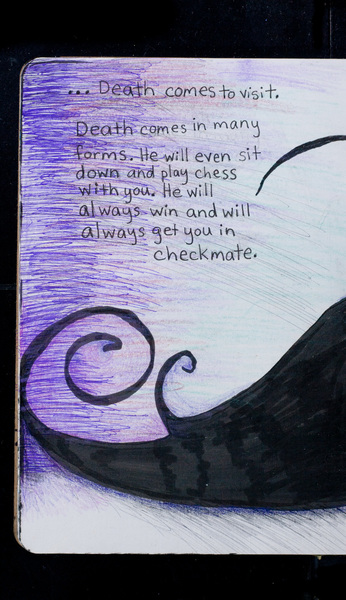 ... Death comes to visit.
Death comes in many
forms. He will even sit
down and play chess
with you. He will
always win and will
always get you in
checkmate.